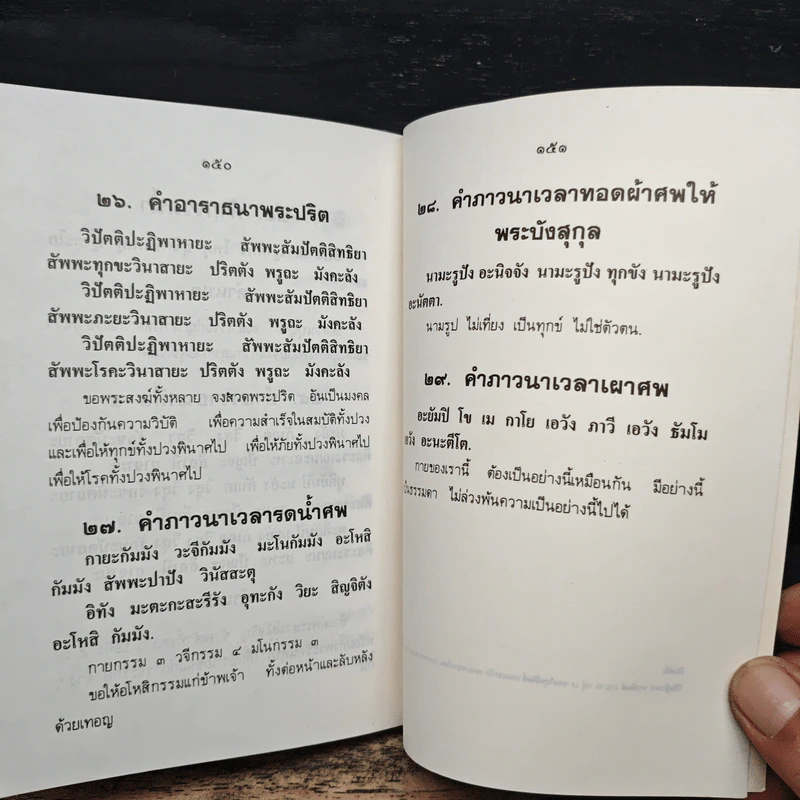 ๑๕๐
๒๖. คำอาราธนาพระปริต
วิปัตติปะฏิพาหายะ สัพพะสัมปัตติสิทธิยา
สัพพะทุกขะวินาสายะ ปริตตัง พรูถะ มังคะลัง
วิปัตติปะฏิพาหายะ สัพพะสัมปัตติสิทธิยา
สัพพะภะยะวินาสายะ ปริตตัง พรูถะ มังคะลัง
วิปัตติปะฏิพาหายะ สัพพะสัมปัตติสิทธิยา
สัพพะโรคะวินาสายะ ปริตตัง พรูถะ มังคะลัง
ขอพระสงฆ์ทั้งหลาย จงสวดพระปริต อันเป็นมงคล
เพื่อป้องกันความวิบัติ เพื่อความสำเร็จในสมบัติทั้งปวง
และเพื่อให้ทุกข์ทั้งปวงพินาศไป เพื่อให้ภัยทั้งปวงพินาศไป
เพื่อให้โรคทั้งปวงพินาศไป
๒๗. คำภาวนาเวลารดน้ำศพ
กายะกัมมัง วะจีกัมมัง มะโนกัมมัง อะโหสิ
กัมมัง สัพพะปาปัง วินัสสะตุ
อิทัง มะตะกะสะรีรัง อุทะกัง วิยะ สิญจิตัง
อะโหสิ กัมมัง.
กายกรรม ๓ วจีกรรม ๔ มโนกรรม ๓
ขอให้อโหสิกรรมแก่ข้าพเจ้า ทั้งต่อหน้าและลับหลัง
ด้วยเทอญ
๑๕๑
๒๘. คำภาวนาเวลาทอดผ้าศพให้
พระบังสุกุล
นามะรูปัง อะนิจจัง นามะรูปัง ทุกขัง นามะรูปัง
อะนัตตา.
นามรูป ไม่เที่ยง เป็นทุกข์ ไม่ใช่ตัวตน.
๒๙. คำภาวนาเวลาเผาศพ
อะยัมปิ โข เม กาโย เอวัง ภาวี เอวัง ธัมโม
อะนะตีโต.
กายของเรานี้ ต้องเป็นอย่างนี้เหมือนกัน มีอย่างนี้
ไม่ล่วงพ้นความเป็นอย่างนี้ไปได้